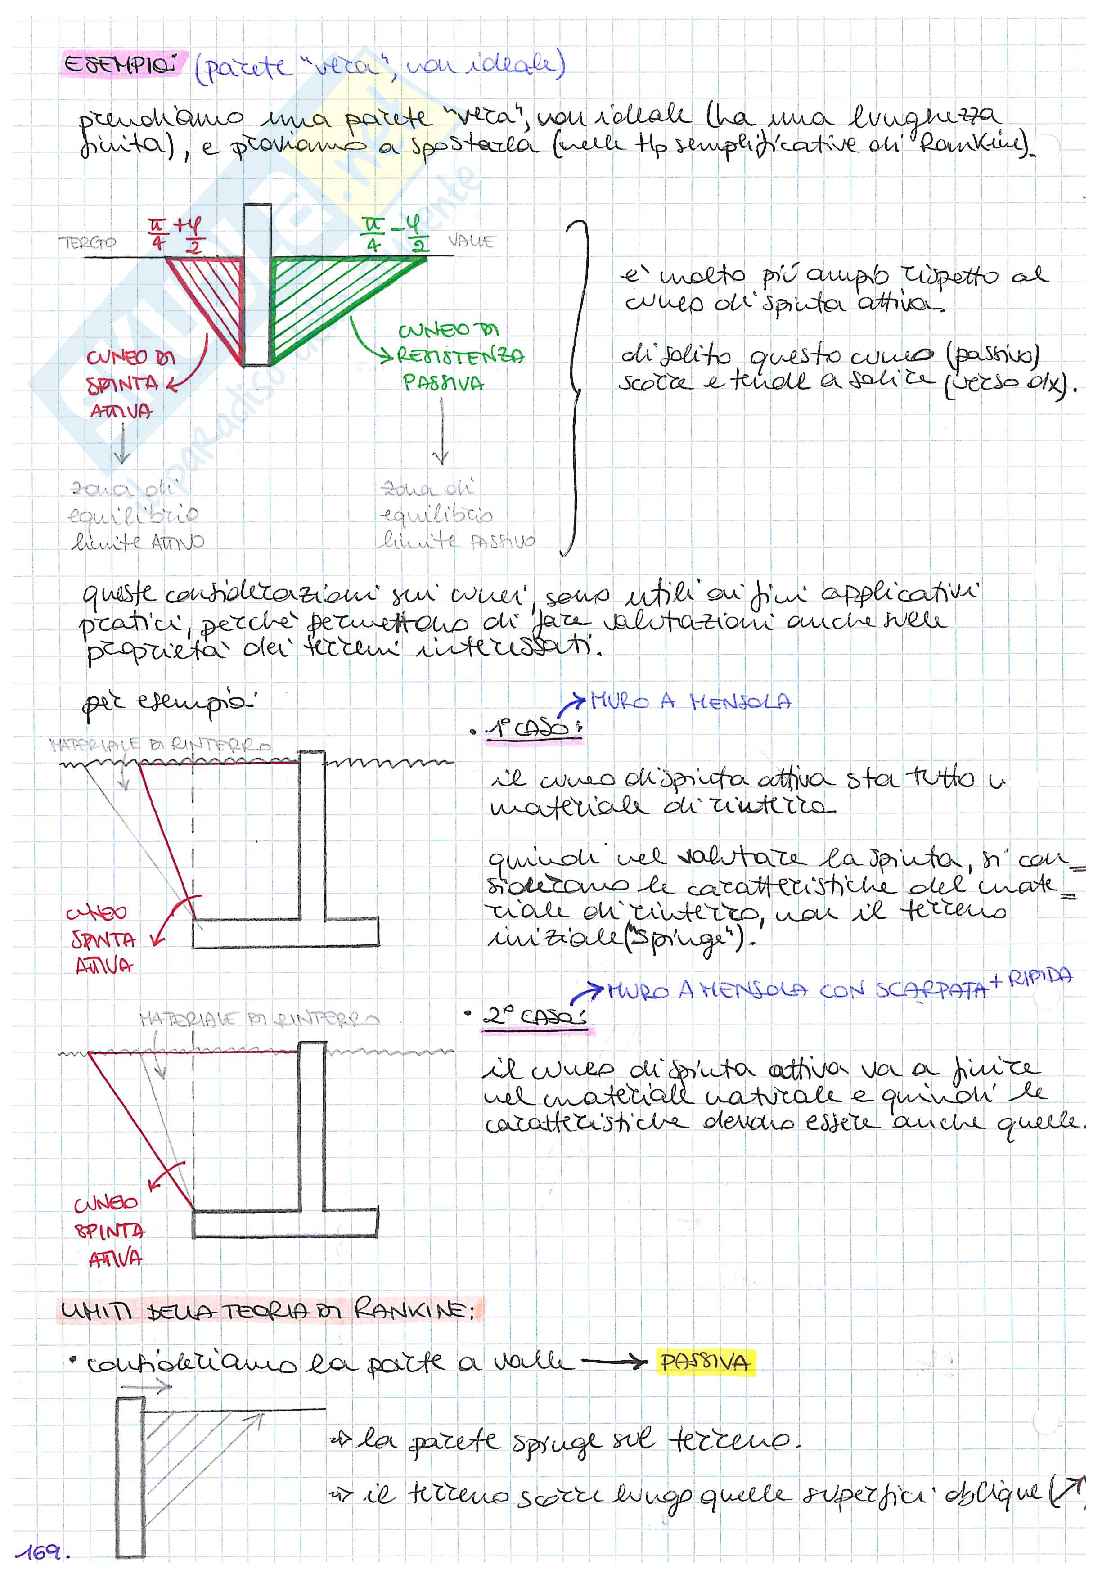 ESEMPIO: (parete "vera", non ideale)
prendiamo una parete "vera", non ideale (ha una lunghezza
finita), e proviamo a spostarla (nelle Hp semplificative di Rankine).
π/4 + φ/2
π/4 - φ/2
TERGO
VALLE
CUNEO DI
SPINTA
ATTIVA
CUNEO DI
RESISTENZA
PASSIVA
zona di
equilibrio
limite ATTIVO
zona di
equilibrio
limite PASSIVO
è molto più ampio rispetto al
cuneo di spinta attiva.
di solito questo cuneo (passivo)
scorre e tende a salire (verso dx).
queste considerazioni sui cunei, sono utili ai fini applicativi
pratici, perchè permettono di fare valutazioni anche sulle
proprietà dei terreni interessati.
per esempio:
MATERIALE DI RINTERRO
CUNEO
SPINTA
ATTIVA
• 1° CASO: → MURO A MENSOLA
il cuneo di spinta attiva sta tutto in
materiale di rinterro.
quindi nel valutare la spinta, si con=
siderano le caratteristiche del mate=
riale di rinterro, non il terreno
iniziale ("spinge").
• 2° CASO: → MURO A MENSOLA CON SCARPATA + RIPIDA
MATERIALE DI RINTERRO
CUNEO
SPINTA
ATTIVA
il cuneo di spinta attiva va a finire
nel materiale naturale e quindi le
caratteristiche devono essere anche quelle.
LIMITI DELLA TEORIA DI RANKINE:
• consideriamo la parte a valle → PASSIVA
→ la parete spinge sul terreno.
→ il terreno scorre lungo quelle superfici oblique (↗)
169.